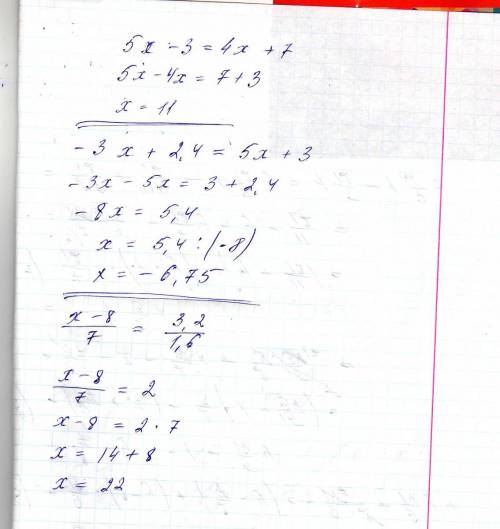 5x - 3 = 4x + 7
5x - 4x = 7 + 3
x = 11
- 3x + 2,4 = 5x + 3
- 3x - 5x = 3 + 2,4
- 8x = 5,4
x = 5,4 : (-8)
x = - 6,75
x - 8 / 7 = 3,2 / 1,6
x - 8 / 7 = 2
x - 8 = 2 · 7
x = 14 + 8
x = 22